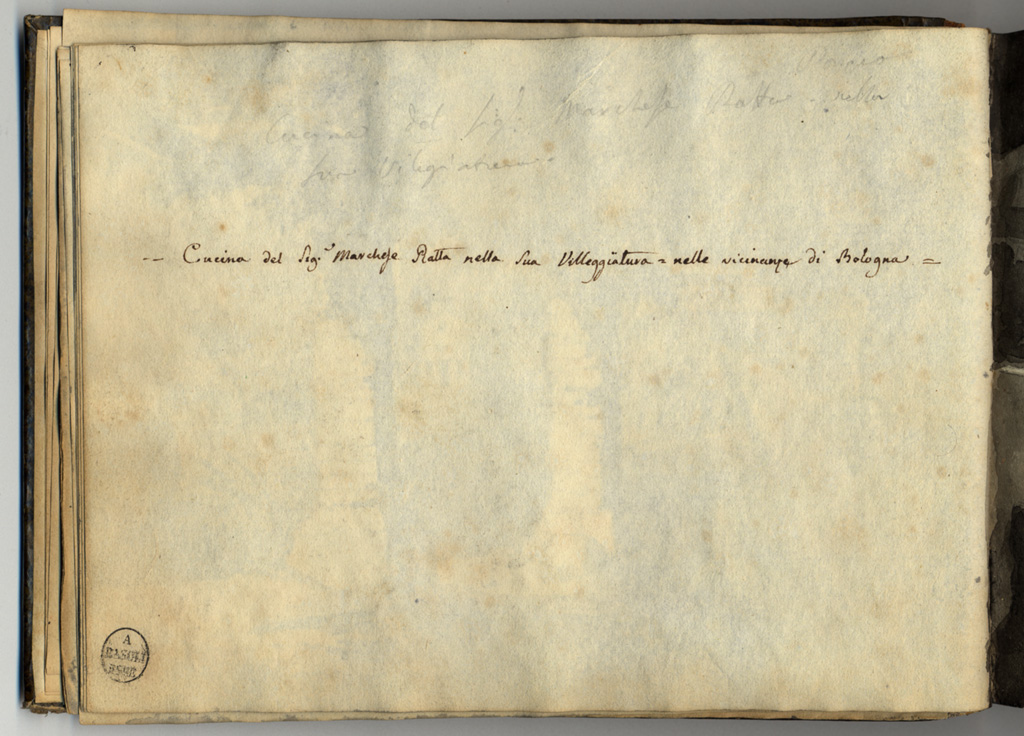 Cucina del Sig.r Marchese Ratta nella
sua Vilegiatura
— Cucina del Sig.r Marchese Ratta nella sua Villeggiatura = nelle vicinanze di Bologna =
A
BASOLI